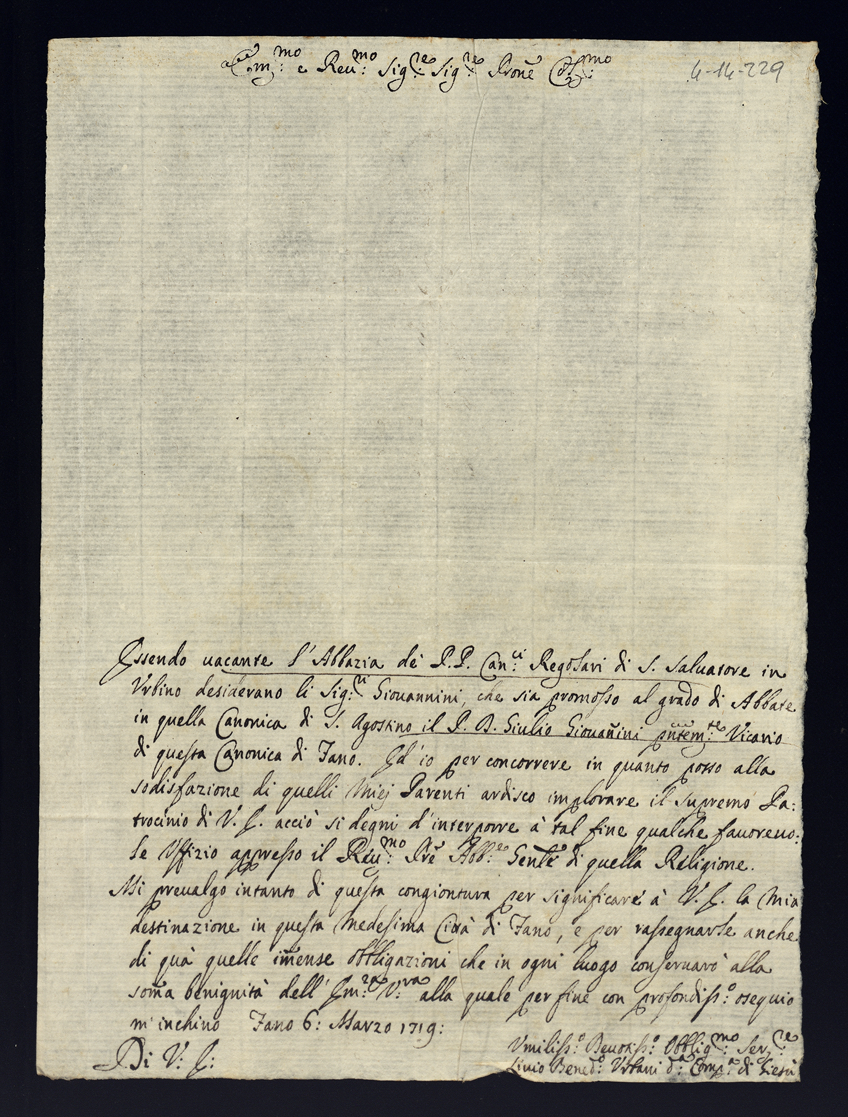 Em:mo e Reu:mo Sig:re Sig:re Prone Col:mo
4-14-229
Essendo uacante l'Abbazia de P.P. Can:ci Regolari di S. Saluatore in
Vrbino desiderano li Sig:ri Giouannini, che sia promosso al grado di Abbate
in quella Canonica di S. Agostino il P. D. Giulio Giouanini pñtem:te Vicario
di questa Canonica di Fano. Ed'io per concorrere in quanto posso alla
sodisfazione di quelli Miej Parenti ardisco implorare il supremo Pa:
trocinio di V. E. acciò si degni d'interporre à tal fine qualche fauoreuo:
le Vffizio appresso il Reu:mo Prē Abb:e Genle di quella Religione.
Mi preualgo intanto di questa congiontura per significare à V. E. la mia
destinazione in questa medesima Città di Fano, e per rassegnarle anche
di quà quelle im̃ense obbligazioni che in ogni luogo conseruarò alla
som̃a benignità dell'Em:za V:ra alla quale per fine con profondiss:o osequio
m'inchino Fano 6: Marzo 1719:
Di V: E:
Vmiliss:o Deuotiss:o Obblig:mo Ser:re
Liuio Bened:o Vrbani d:a Comp:a di Giesù